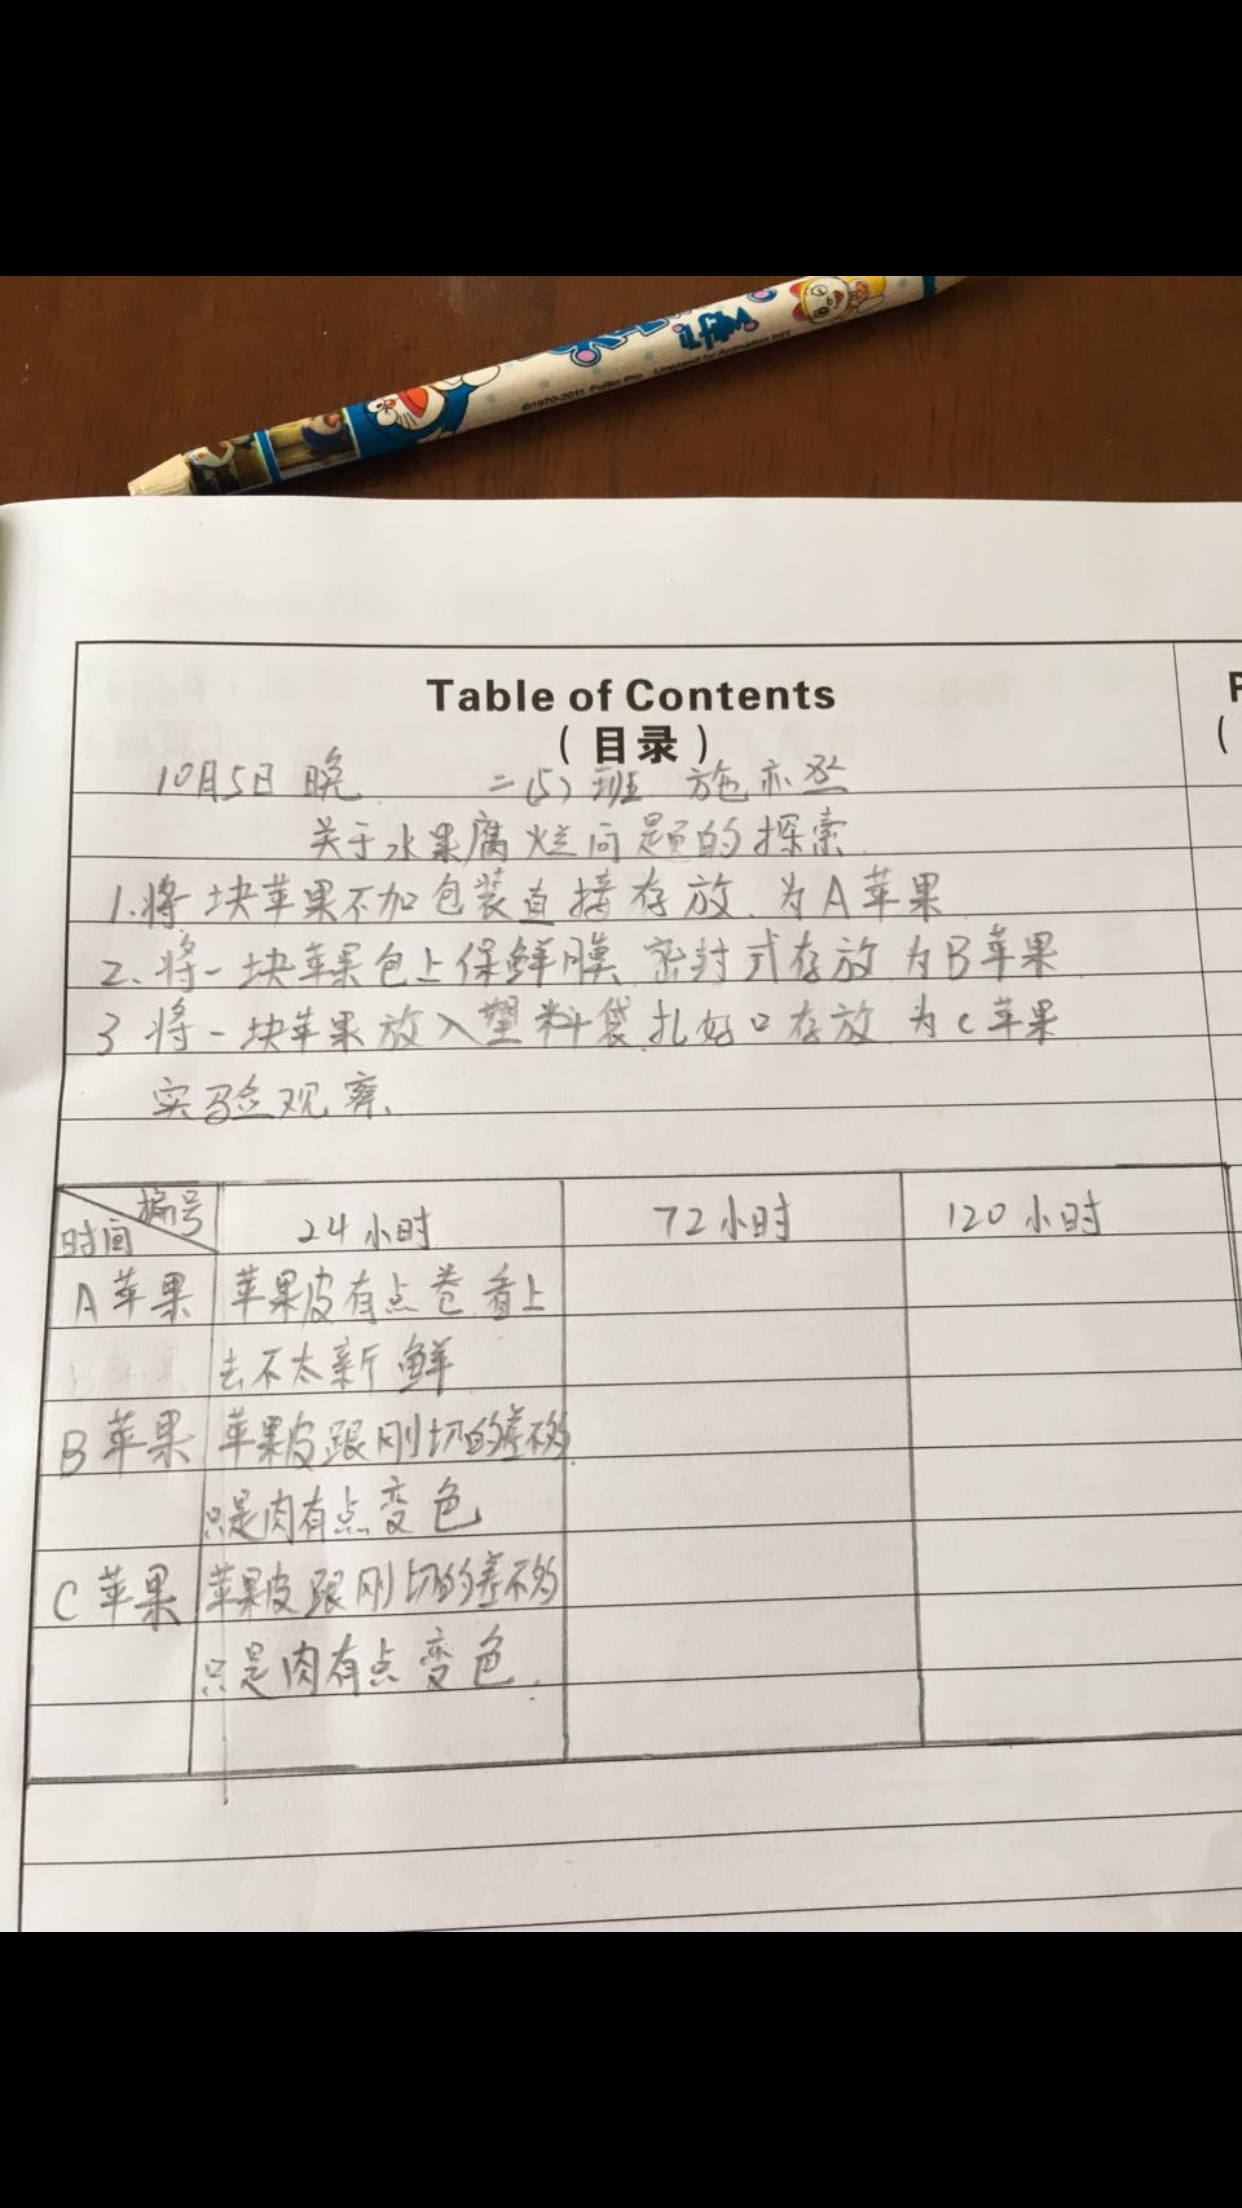 ©1970-2011 Fujiko Pro Licensed by Animation Int'l
Table of Contents
P
（目录）
（
10月5日 晚 二(5)班 施亦然
关于水果腐烂问题的探索
1.将一块苹果不加包装直接存放、为A苹果
2、将一块苹果包上保鲜膜 密封式存放 为B苹果
3 将一块苹果放入塑料袋 扎好口存放 为C苹果
实验观察、
编号
时间 24小时 72小时 120小时
A苹果 苹果皮有点卷 看上
B苹果 去不太新鲜
B苹果 苹果皮跟刚切的差不多
只是肉有点变色
C苹果 苹果皮跟刚切的差不多
只是肉有点变色.